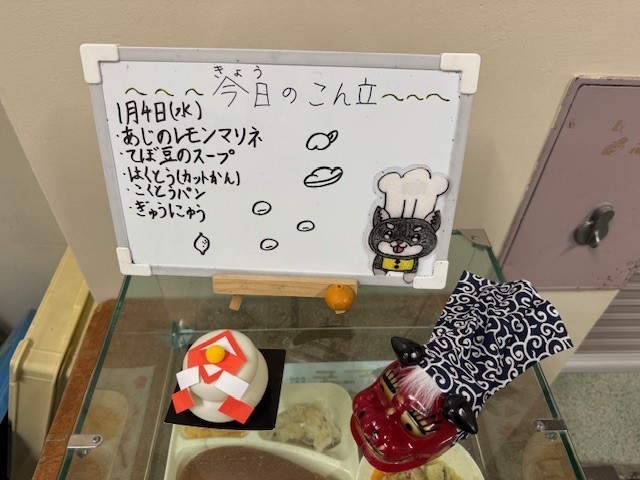 きょう
～～～今日のこん立～～～
1月4日(水)
・あじのレモンマリネ
・てぼ豆のスープ
・はくとう(カットかん)
・こくとうパン
・ぎゅうにゅう